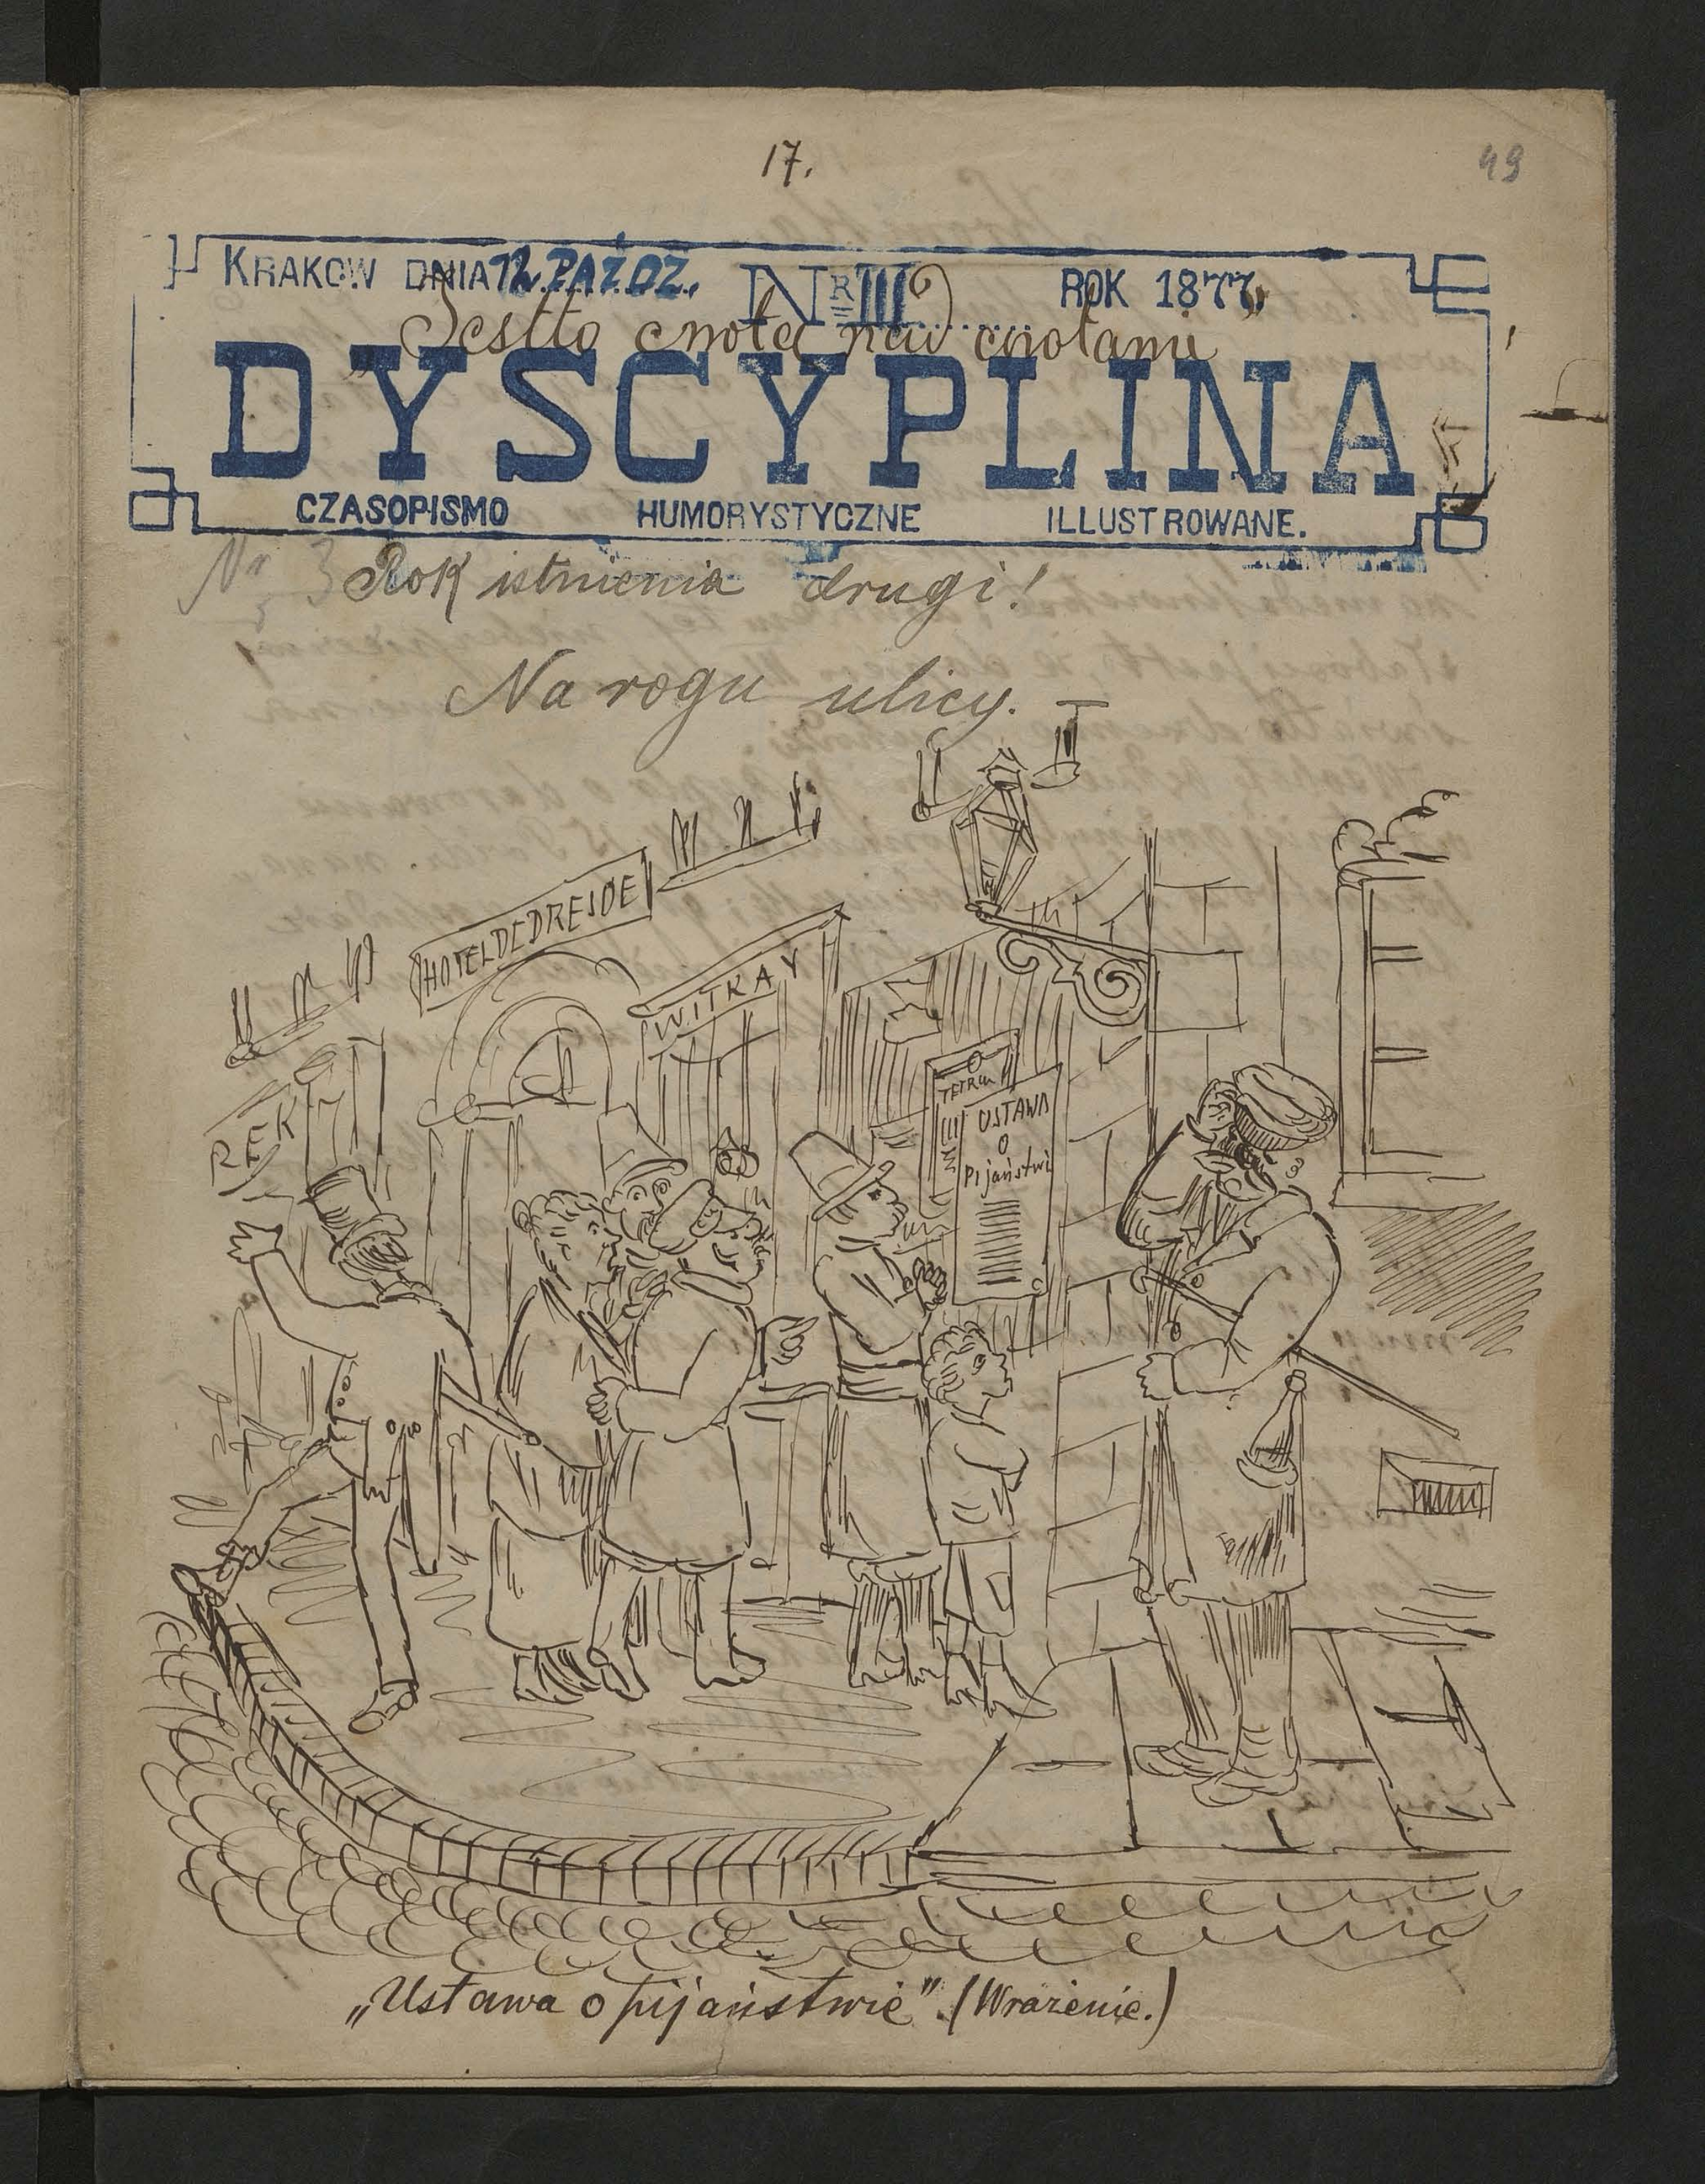 17.
49
KRAKOW DNIA 12. PAŹDZ. NR III ROK 1877.
„Jestto cnota nad cnotami”
DYSCYPLINA
CZASOPISMO HUMORYSTYCZNE ILLUSTROWANE.
Nr 3 Rok istnienia drugi!
Na rogu ulicy.
HOTEL DE DRESDE
WITKAY
REK
USTAWA
O
Pijaństwi
„Ustawa o pijaństwie”. (Wrażenie.)